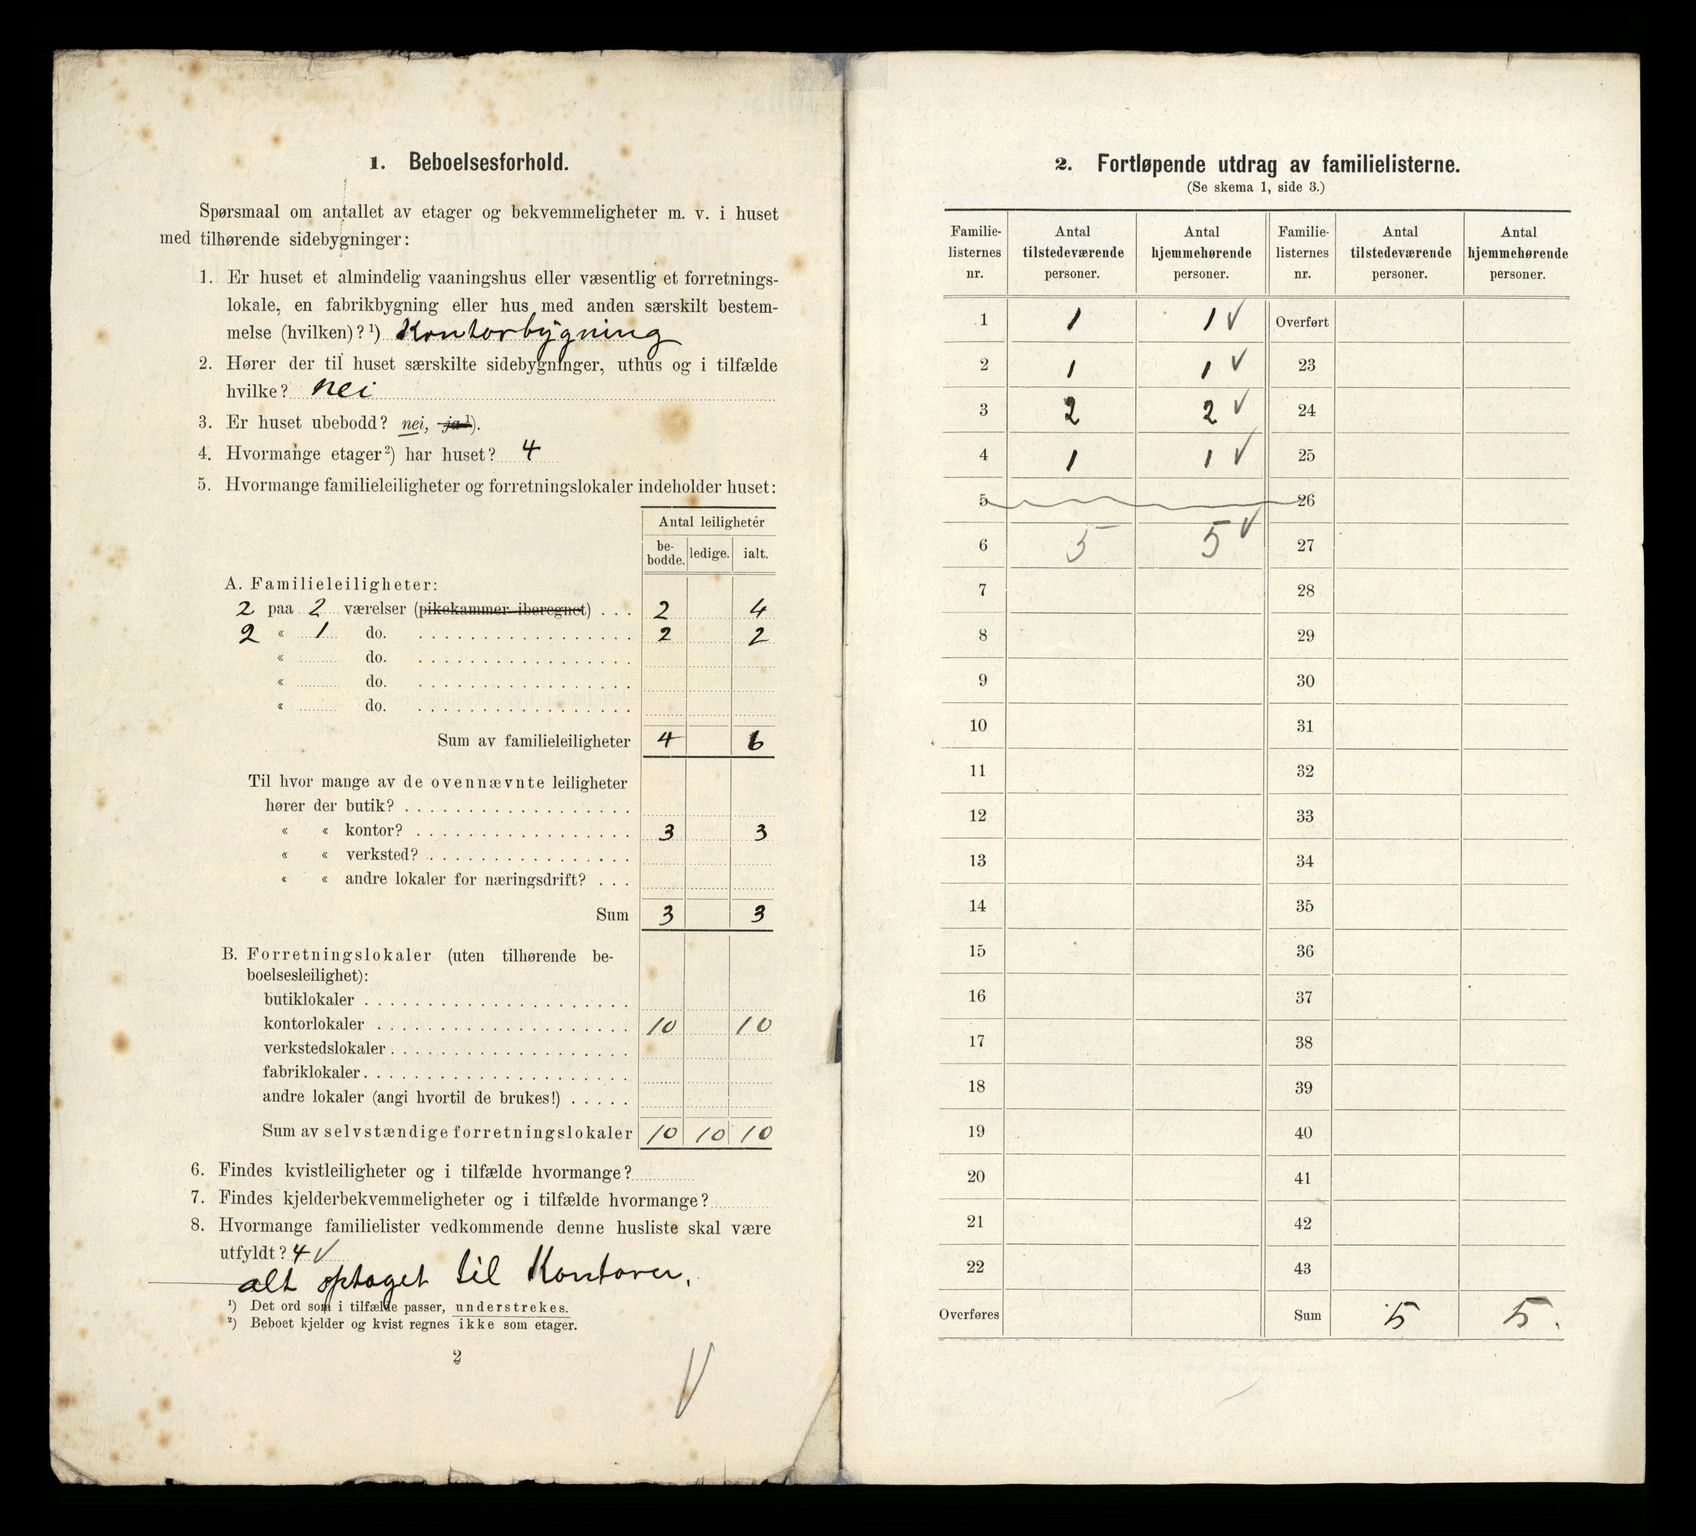 1. Beboelsesforhold.
Spørsmaal om antallet av etager og bekvemmeligheter m. v. i huset
med tilhørende sidebygninger:
1. Er huset et almindelig vaaningshus eller væsentlig et forretnings-
lokale, en fabrikbygning eller hus med anden særskilt bestem-
melse (hvilken)?¹) Kontorbygning
2. Hører der til huset særskilte sidebygninger, uthus og i tilfælde
hvilke? nei
3. Er huset ubebodd? nei, ja¹).
4. Hvormange etager²) har huset? 4
5. Hvormange familieleiligheter og forretningslokaler indeholder huset:
Antal leiligheter
be-
bodde. ledige. ialt.
A. Familieleiligheter:
2 paa 2 værelser (pikekammer iberegnet) . . . 2 4
2 « 1 do. . . . . . . . . . . . . . . . . . 2 2
« do. . . . . . . . . . . . . . . . . .
« do. . . . . . . . . . . . . . . . . .
« do. . . . . . . . . . . . . . . . . .
Sum av familieleiligheter 4 6
Til hvor mange av de ovennævnte leiligheter
hører der butik? . . . . . . . . . . . . . . . . . .
« « kontor? . . . . . . . . . . . . . . . . . 3 3
« « verksted? . . . . . . . . . . . . . . . .
« « andre lokaler for næringsdrift? . . .
Sum 3 3
B. Forretningslokaler (uten tilhørende be-
boelsesleilighet):
butiklokaler . . . . . . . . . . . . . . . . . . . . .
kontorlokaler . . . . . . . . . . . . . . . . . . . . 10 10
verkstedslokaler . . . . . . . . . . . . . . . . . . .
fabriklokaler . . . . . . . . . . . . . . . . . . . . .
andre lokaler (angi hvortil de brukes!) . . . . .
Sum av selvstændige forretningslokaler 10 10 10
6. Findes kvistleiligheter og i tilfælde hvormange?
7. Findes kjelderbekvemmeligheter og i tilfælde hvormange?
8. Hvormange familielister vedkommende denne husliste skal være
utfyldt? 4 V
alt optaget til Kontorer.
¹) Det ord som i tilfælde passer, understrekes.
²) Beboet kjelder og kvist regnes ikke som etager.
2
V
2. Fortløpende utdrag av familielisterne.
(Se skema 1, side 3.)
Familie- Antal Antal Familie- Antal Antal
listernes tilstedeværende hjemmehørende listernes tilstedeværende hjemmehørende
nr. personer. personer. nr. personer. personer.
1 1 1 V Overført
2 1 1 V 23
3 2 2 V 24
4 1 1 V 25
5 26
6 5 5 V 27
7 28
8 29
9 30
10 31
11 32
12 33
13 34
14 35
15 36
16 37
17 38
18 39
19 40
20 41
21 42
22 43
Overføres Sum 5 5.